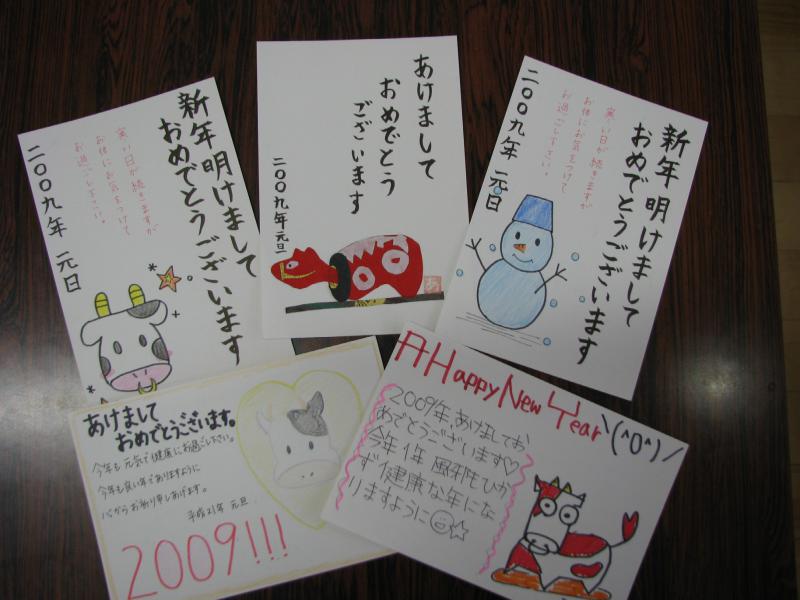 新年明けまして
おめでとうございます
寒い日が続きますが
お体にお気をつけて
お過ごし下さい。
二〇〇九年 元日
あけまして
おめでとう
ございます
二〇〇九年元旦
あ
新年明けまして
おめでとうございます
寒い日が続きますが
お体にお気をつけて
お過ごし下さい。
二〇〇九年 元日
あけまして
おめでとうございます。
今年も元気で健康にお過ごし下さい。
今年も良い年でありますように
心からお祈り申しあげます。
平成21年 元旦
2009!!!
A Happy New Year \(^0^)/
2009年、あけましてお
めでとうございます♡
今年1年 風邪をひか
ず健康な年にな
りますように☺☆